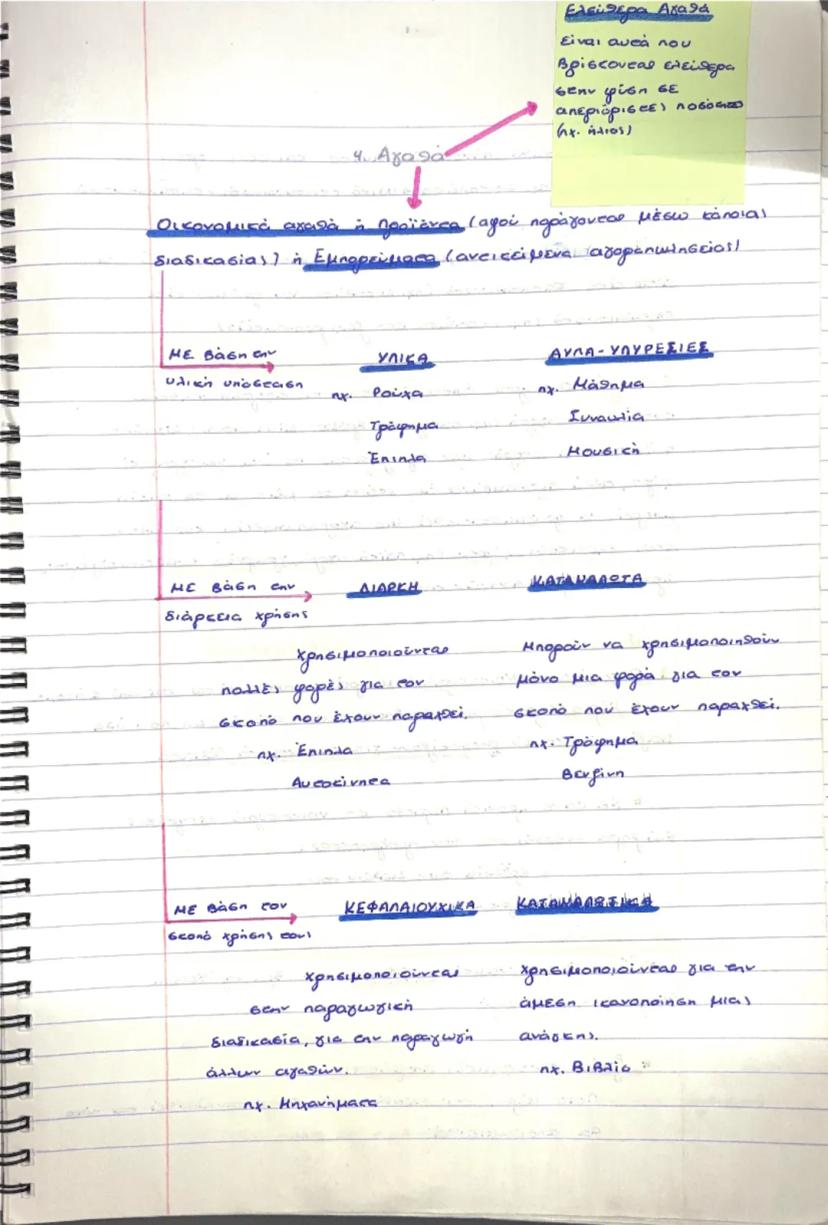 Ελεύθερα Αγαθά
είναι αυτά που
βρίσκονται ελεύθερα
στην φύση σε
απεριόριστες ποσότητες
(πχ. ήλιος)
4. Αγαθά
Οικονομικά αγαθά ή Προϊόντα (αφού παράγονται μέσω κάποιας
διαδικασίας) ή Εμπορεύματα (αντικείμενα αγοραπωλησίας)
ΜΕ βάση την ΥΛΙΚΑ ΑΥΛΑ-ΥΠΥΡΕΣΙΕΣ
υλική υπόσταση πχ. Ρούχα πχ. Μάθημα
Τρόφημα Συναυλία
Έπιπλα Μουσική
ΜΕ βάση την ΔΙΑΡΚΗ ΚΑΤΑΝΑΛΩΤΑ
διάρκεια χρήσης
χρησιμοποιούνται Μπορούν να χρησιμοποιηθούν
πολλές φορές για τον μόνο μια φορά για τον
σκοπό που έχουν παραχθεί. σκοπό που έχουν παραχθεί.
πχ. Έπιπλα πχ. Τρόφημα
Αυτοκίνητα Βενζίνη
ΜΕ βάση τον ΚΕΦΑΛΑΙΟΥΧΙΚΑ ΚΑΤΑΝΑΛΩΤΙΚΑ
σκοπό χρήσης τους
χρησιμοποιούνται χρησιμοποιούνται για την
στην παραγωγική άμεση ικανοποίηση μιας
διαδικασία, για την παραγωγή ανάγκης.
άλλων αγαθών. πχ. Βιβλίο
πχ. Μηχανήματα